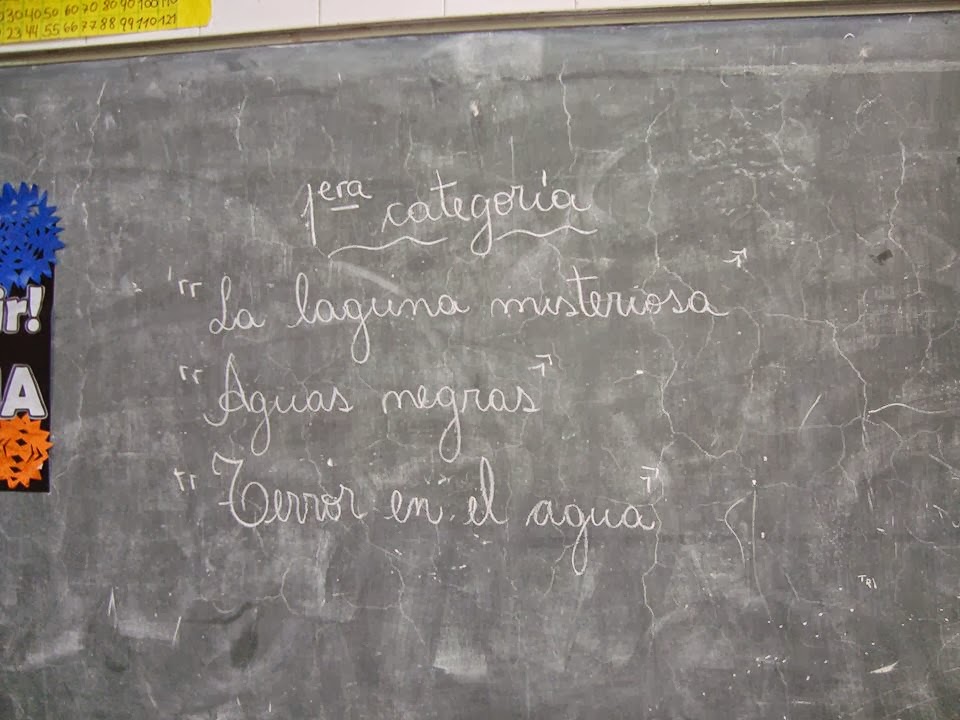 30 40 50 60 70 80 90 100 110
23 44 55 66 77 88 99 110 121
1era categoría
"La laguna misteriosa"
"Aguas negras"
"Terror en el agua"
ir!
NA